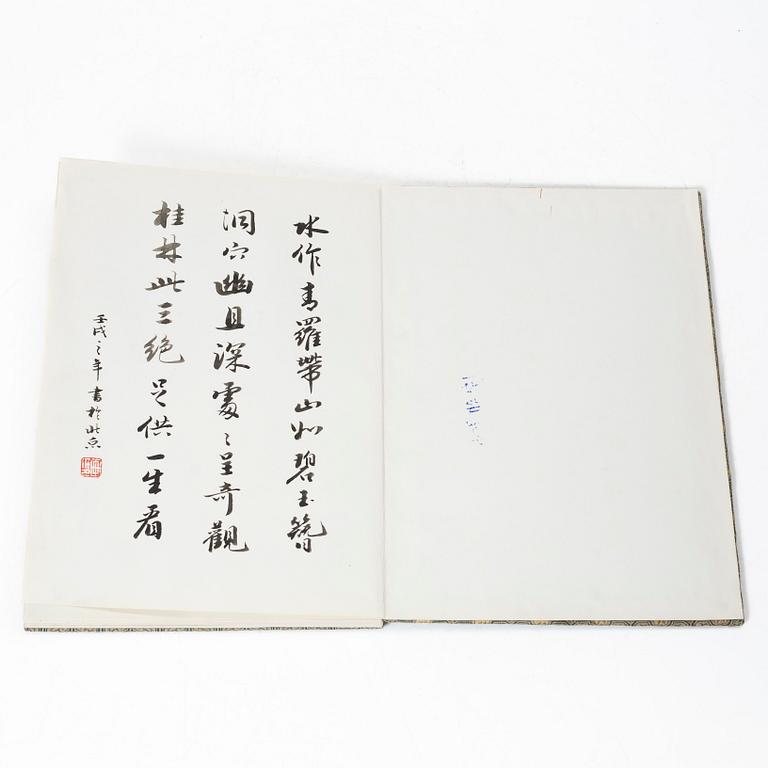 水作青羅帶山如碧玉簪
洞穴幽且深處〻呈奇觀
桂林此三绝足供一生看
壬戌之年書於北京